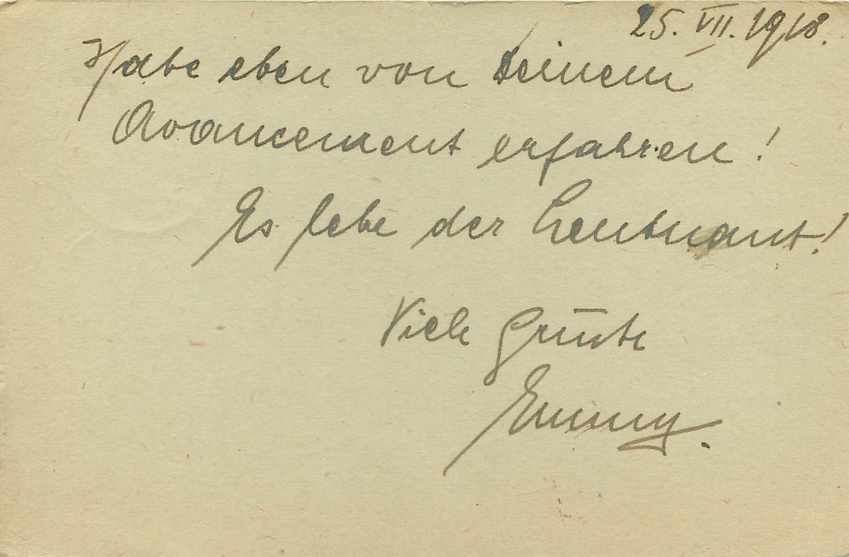 25. VII. 1918.
Habe eben von Deinem
Avancement erfahren!
Es lebe der Leutnant!
Viele Grüße
Emmy.